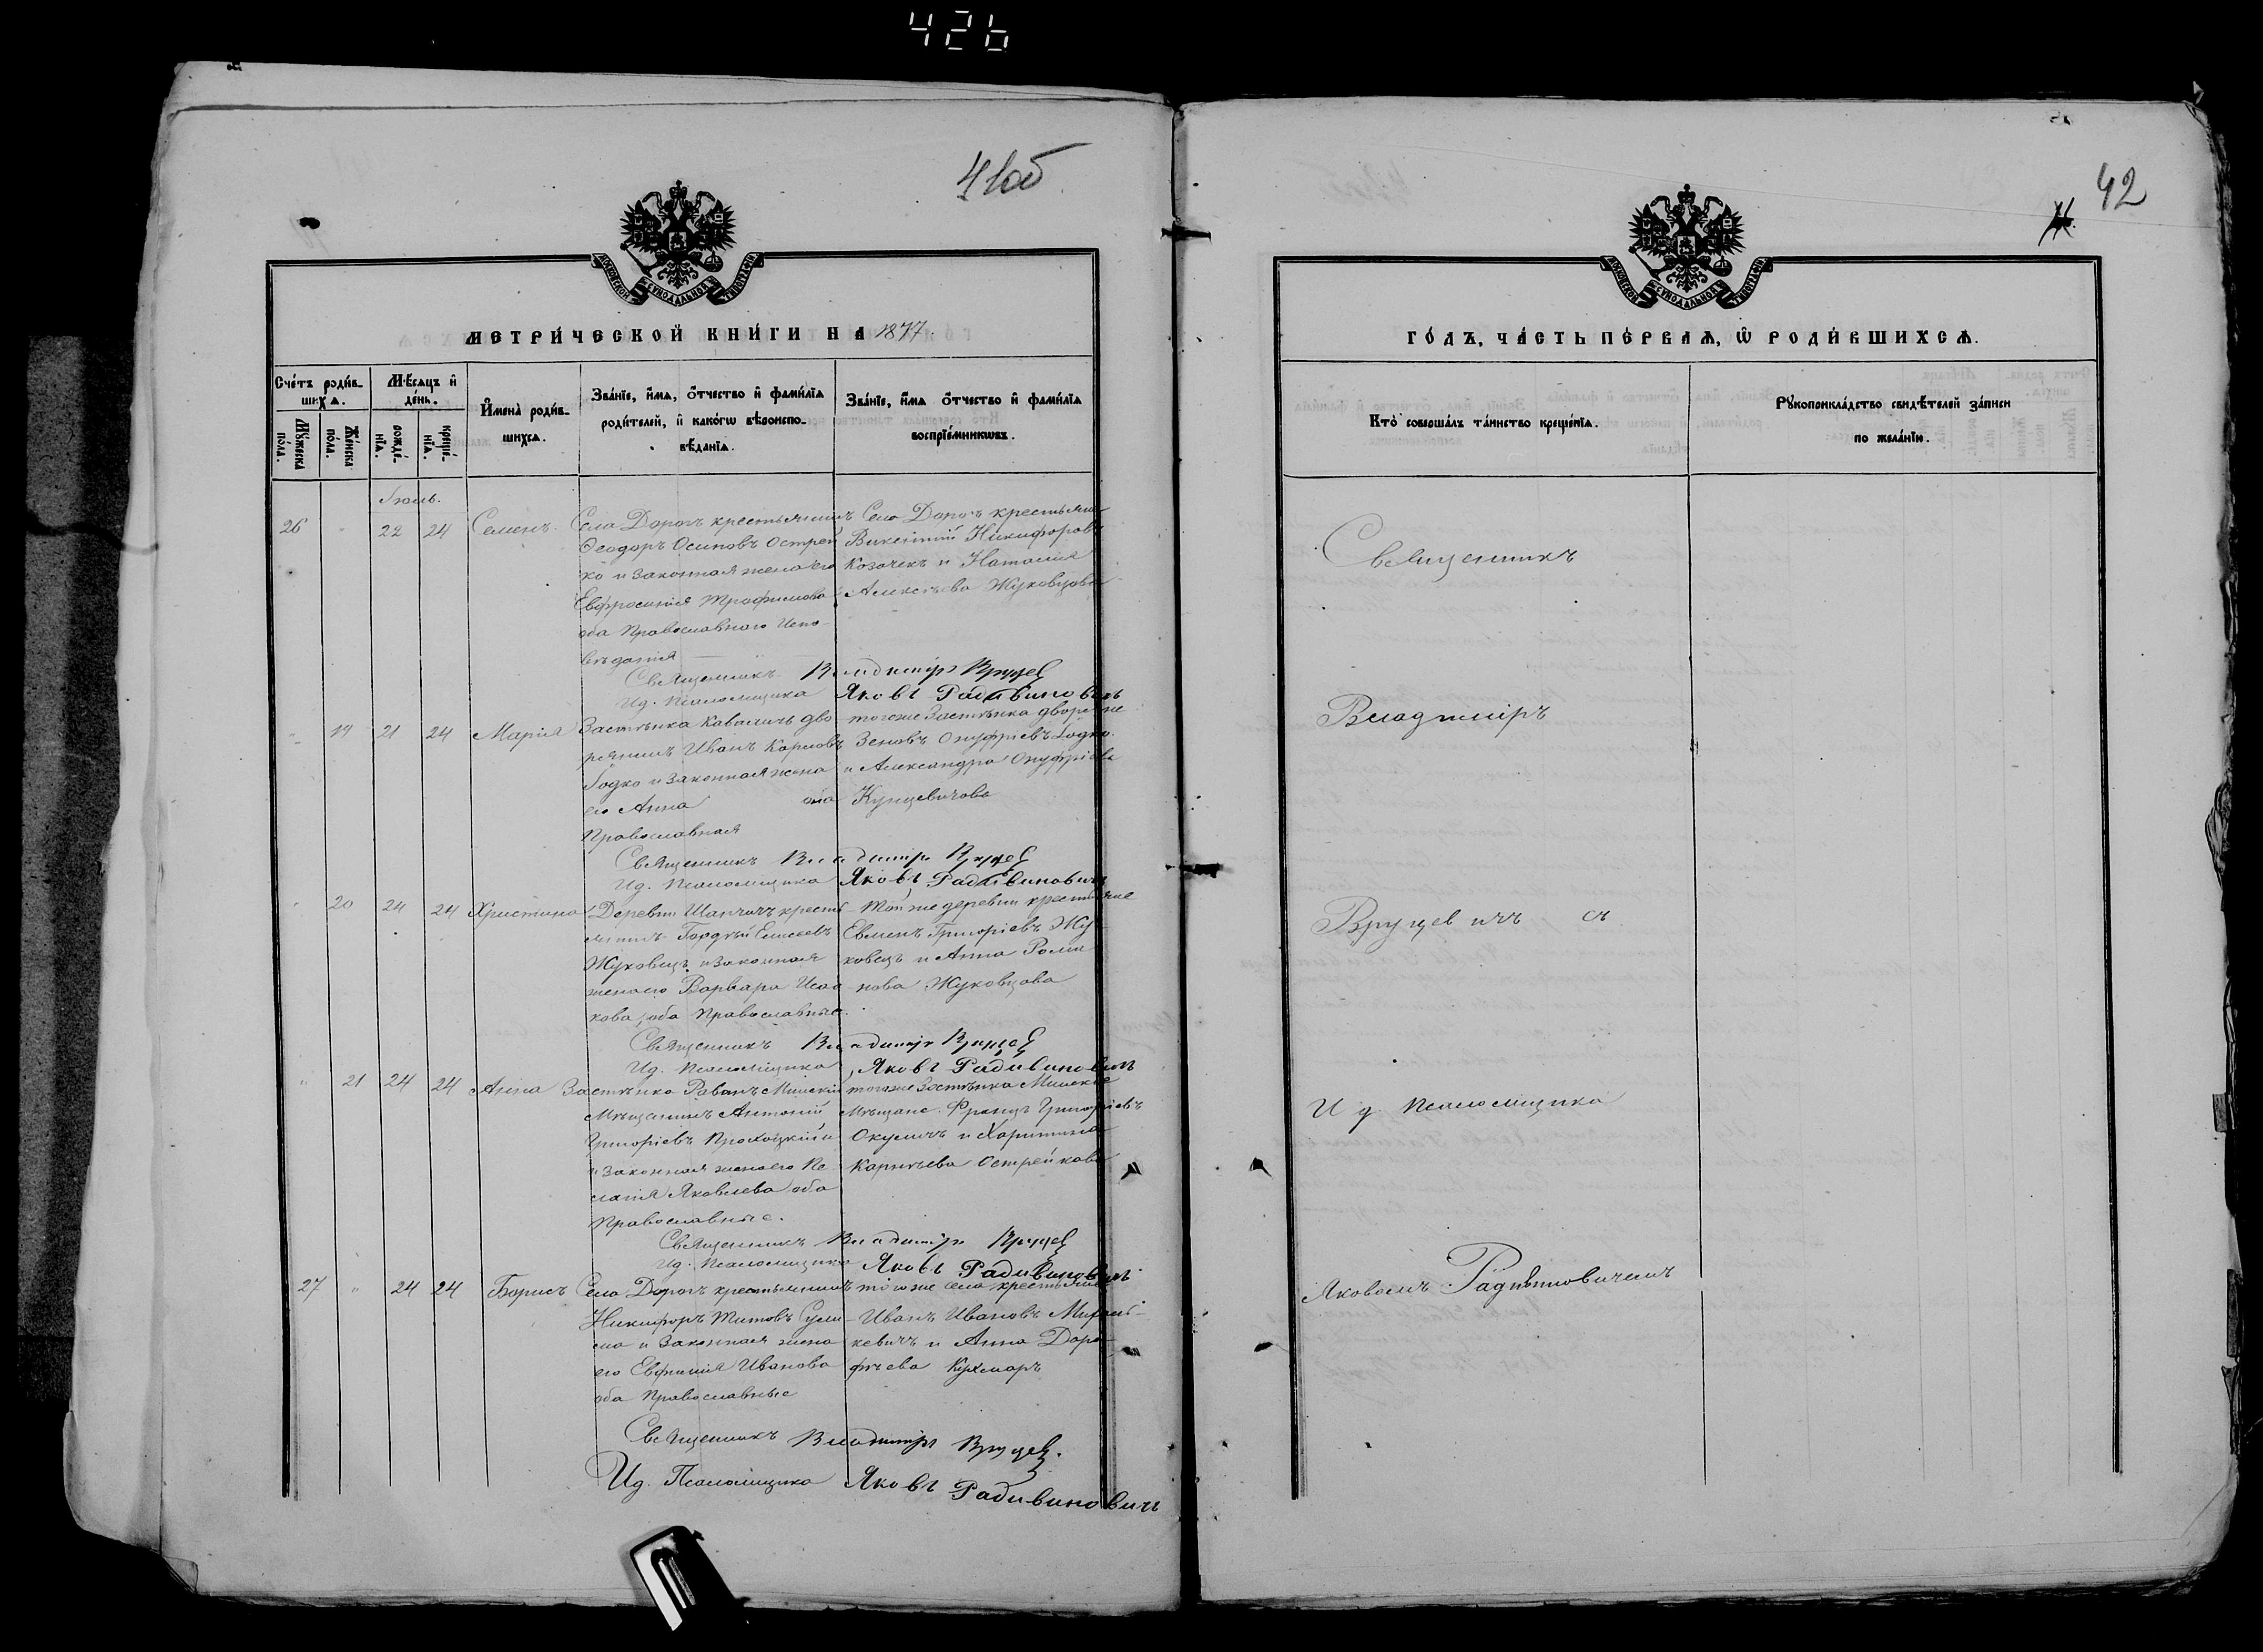 426
41об
МОСКОВСКОЙ СѴНОДАЛЬНОЙ ТИПОГРАФІИ
МЕТРИ́ЧЕСКОЙ КНИ́ГИ НА 1877.
Сче́тъ роди́в-
шихсѧ.
Мꙋ́жеска
по́ла.
Же́нска
по́ла.
Мѣ́сѧцъ и҆
де́нь.
рожде́-
нїѧ.
креще́-
нїѧ.
И҆мена̀ роди́в-
шихсѧ.
Зва́нїе, и҆́мѧ, ѻ҆́тчество и҆ фами́лїѧ
роди́телей, и҆ како́гѡ вѣроиспо-
вѣ́данїѧ.
Зва́нїе, и҆́мѧ ѻ҆́тчество и҆ фами́лїѧ
воспрїе́мникѡвъ.
Іюль.
26 " 22 24 Семенъ.
Села Дорогъ крестьянинъ
Ѳеодоръ Осиповъ Острей
ко и законная жена его
Евфросинія Трофимова
оба Православнаго Испо-
вѣданія
Село Дорогъ крестьяне
Викентій Никифоровъ
Козачекъ и Наталія
Алексѣева Жуковцова
Священникъ Владимiръ Вруцев
Ид. Псаломщика Яковъ Радивиновичъ
" 19 21 24 Марія
Застѣнка Коваличъ дво-
рянинъ Иванъ Карповъ
Годко и законная жена
его Анна она
Православная
того же Застѣнка дворяне
Зеновъ Онуфріевъ Годко
и Александра Онуфріева
Кунцевичова
Священникъ Владимiръ Вруцев
Ид. Псаломщика Яковъ Радивиновичъ
" 20 24 24 Христина
Деревни Шапчичъ кресть-
янинъ Гордѣй Елисеевъ
Жуковецъ и законная
жена его Варвара Исаа
кова, оба Православные.
Той же деревни крестьяне
Евменъ Григоріевъ Жу-
ковецъ и Анна Рома
нова Жуковцова
Священникъ Владимiръ Вруцев
Ид. Псаломщика, Яковъ Радивиновичъ
" 21 24 24 Анна
Застѣнка Раванъ Минскій
Мѣщанинъ Антоній
Григоріевъ
и законная жена его Пе-
лагія Яковлева оба
Православные.
того же Застѣнка Минскіе
Мѣщане Францъ Григоріевъ
Окуличъ и Харитина
Карпѣева Острейкова
Священникъ Владимiръ Вруцев
Ид. Псаломщика Яковъ Радивиновичъ
27 " 24 24 Борисъ
Села Дорогъ крестьянинъ
Никифоръ Титовъ
и законная жена
его Евфимія Иванова
оба Православные
того же села крестьяне
Иванъ Ивановъ
кевичъ и Анна Доро-
фѣева Кухмаръ
Священникъ Владимiръ Вруцев.
Ид. Псаломщика Яковъ Радивиновичъ
42
МОСКОВСКОЙ СѴНОДАЛЬНОЙ ТИПОГРАФІИ
ГО́ДЪ, ЧА́СТЬ ПЕ́РВАѦ, Ѡ҆ РОДИ́ВШИХСѦ.
Кто̀ соверша́лъ та́инство креще́нїѧ.
Рꙋкоприкла́дство свидѣ́телей за́писи
по жела́нїю.
Священникъ
Владимiръ
Вруцевичъ съ
И д. Псаломщика
Яковомъ Радивиновичемъ